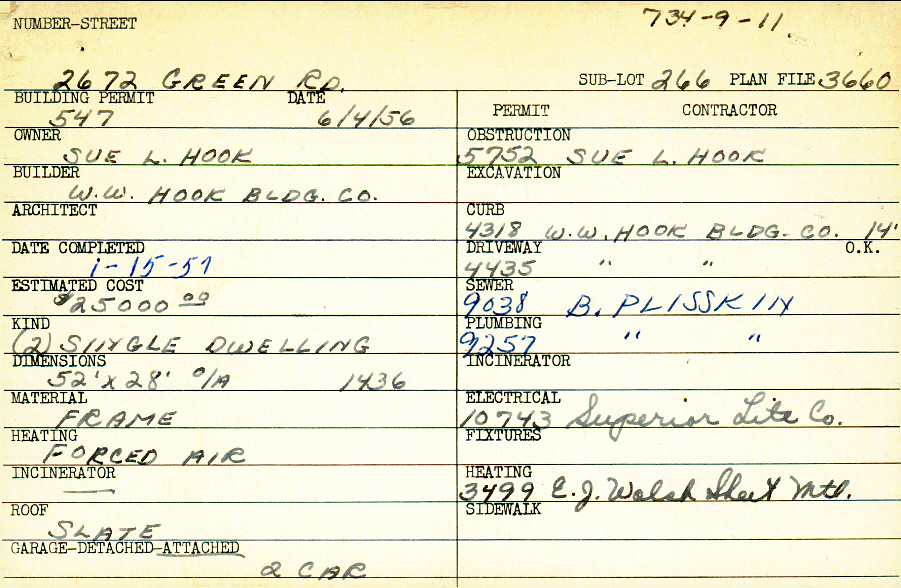 734-9-11
NUMBER-STREET
2672 GREEN RD. SUB-LOT 266 PLAN FILE 3660
BUILDING PERMIT DATE
547 6/4/56
OWNER
SUE L. HOOK
BUILDER
W.W. HOOK BLDG. CO.
ARCHITECT
DATE COMPLETED
1-15-57
ESTIMATED COST
$25000 00
KIND
(2) SINGLE DWELLING
DIMENSIONS
52' X 28' O/A 1436
MATERIAL
FRAME
HEATING
FORCED AIR
INCINERATOR
—
ROOF
SLATE
GARAGE-DETACHED-ATTACHED
2 CAR
PERMIT CONTRACTOR
OBSTRUCTION
5752 SUE L. HOOK
EXCAVATION
CURB
4318 W.W. HOOK BLDG. CO. 14'
DRIVEWAY O.K.
4435 " "
SEWER
9038 B. PLISSKIN
PLUMBING
9257 " "
INCINERATOR
ELECTRICAL
10743 Superior Lite Co.
FIXTURES
HEATING
3499 E.J. Walsh Sheet Mtl.
SIDEWALK